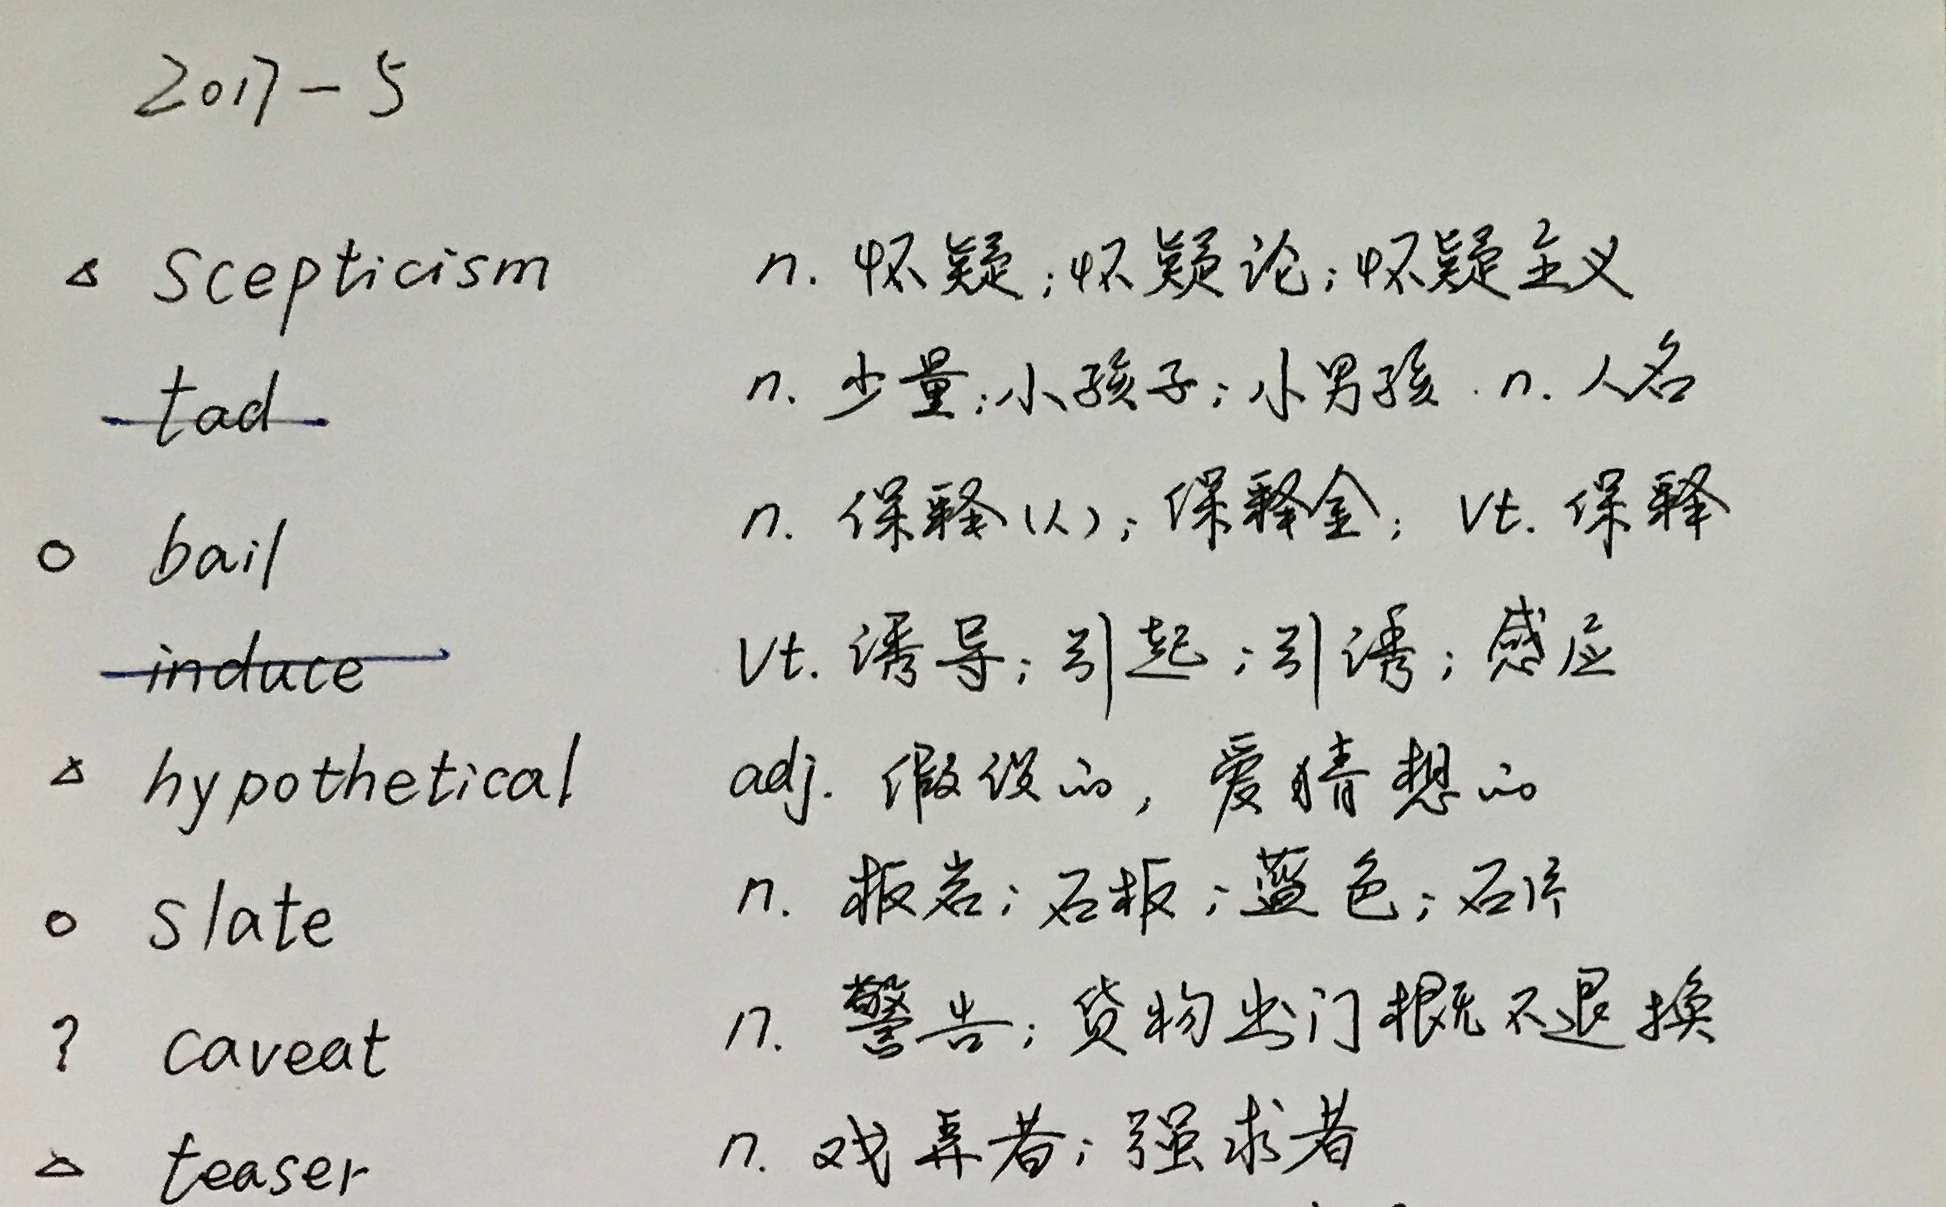 2017-5
△ scepticism n. 怀疑;怀疑论;怀疑主义
tad n. 少量;小孩子;小男孩. n. 人名
○ bail n. 保释(人);保释金; vt. 保释
induce vt. 诱导;引起;引诱;感应
△ hypothetical adj. 假设的,爱猜想的
○ slate n. 板岩;石板;蓝色;石片
? caveat n. 警告;货物出门概不退换
△ teaser n. 戏弄者;强求者